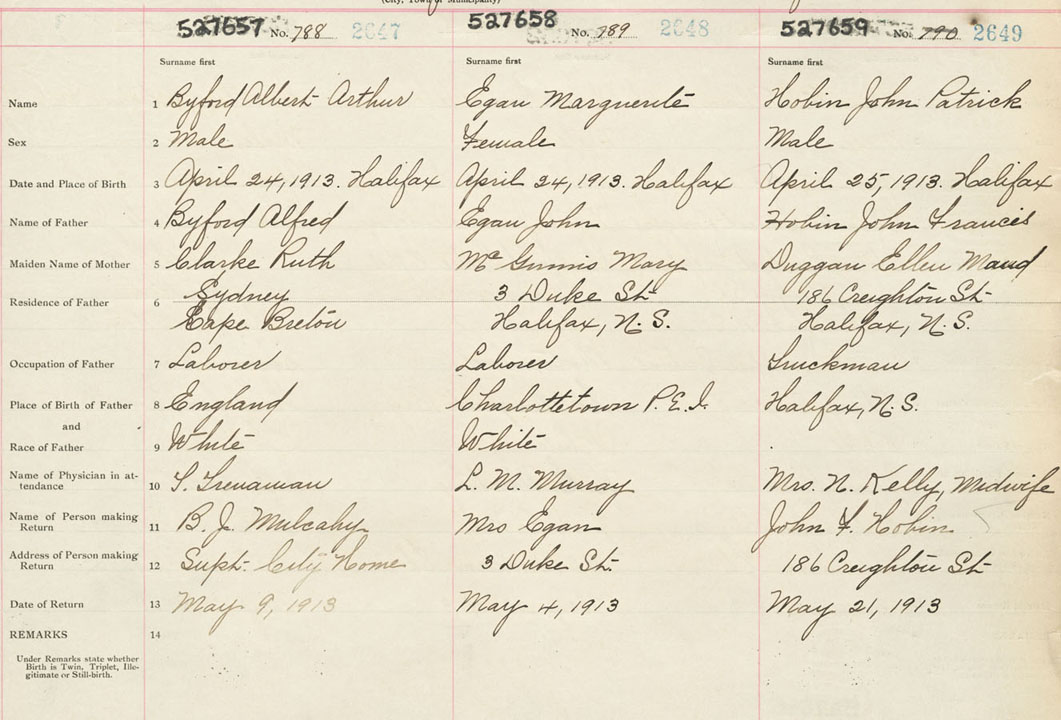 (City, Town or Municipality)
527657 No. 788 2647 527658 No. 789 2648 527659 No. 790 2649
Surname first Surname first Surname first
Name 1 Byford Albert Arthur Egan Marguerite Hobin John Patrick
Sex 2 Male Female Male
Date and Place of Birth 3 April 24, 1913. Halifax April 24, 1913. Halifax April 25, 1913. Halifax
Name of Father 4 Byford Alfred Egan John Hobin John Francis
Maiden Name of Mother 5 Clarke Ruth Mc Ginnis Mary Duggan Ellen Maud
Residence of Father 6 Sydney 3 Duke St. 186 Creighton St.
Cape Breton Halifax, N.S. Halifax, N.S.
Occupation of Father 7 Laborer Laborer Truckman
Place of Birth of Father 8 England Charlottetown P.E.I. Halifax, N.S.
and
Race of Father 9 White White
Name of Physician in at-
tendance 10 S. Trenaman L. M. Murray Mrs. N. Kelly, Midwife
Name of Person making
Return 11 B. J. Mulcahy Mrs Egan John F. Hobin
Address of Person making
Return 12 Supt. City Home 3 Duke St. 186 Creighton St.
Date of Return 13 May 9, 1913 May 4, 1913 May 21, 1913
REMARKS 14
Under Remarks state whether
Birth is Twin, Triplet, Ille-
gitimate or Still-birth.